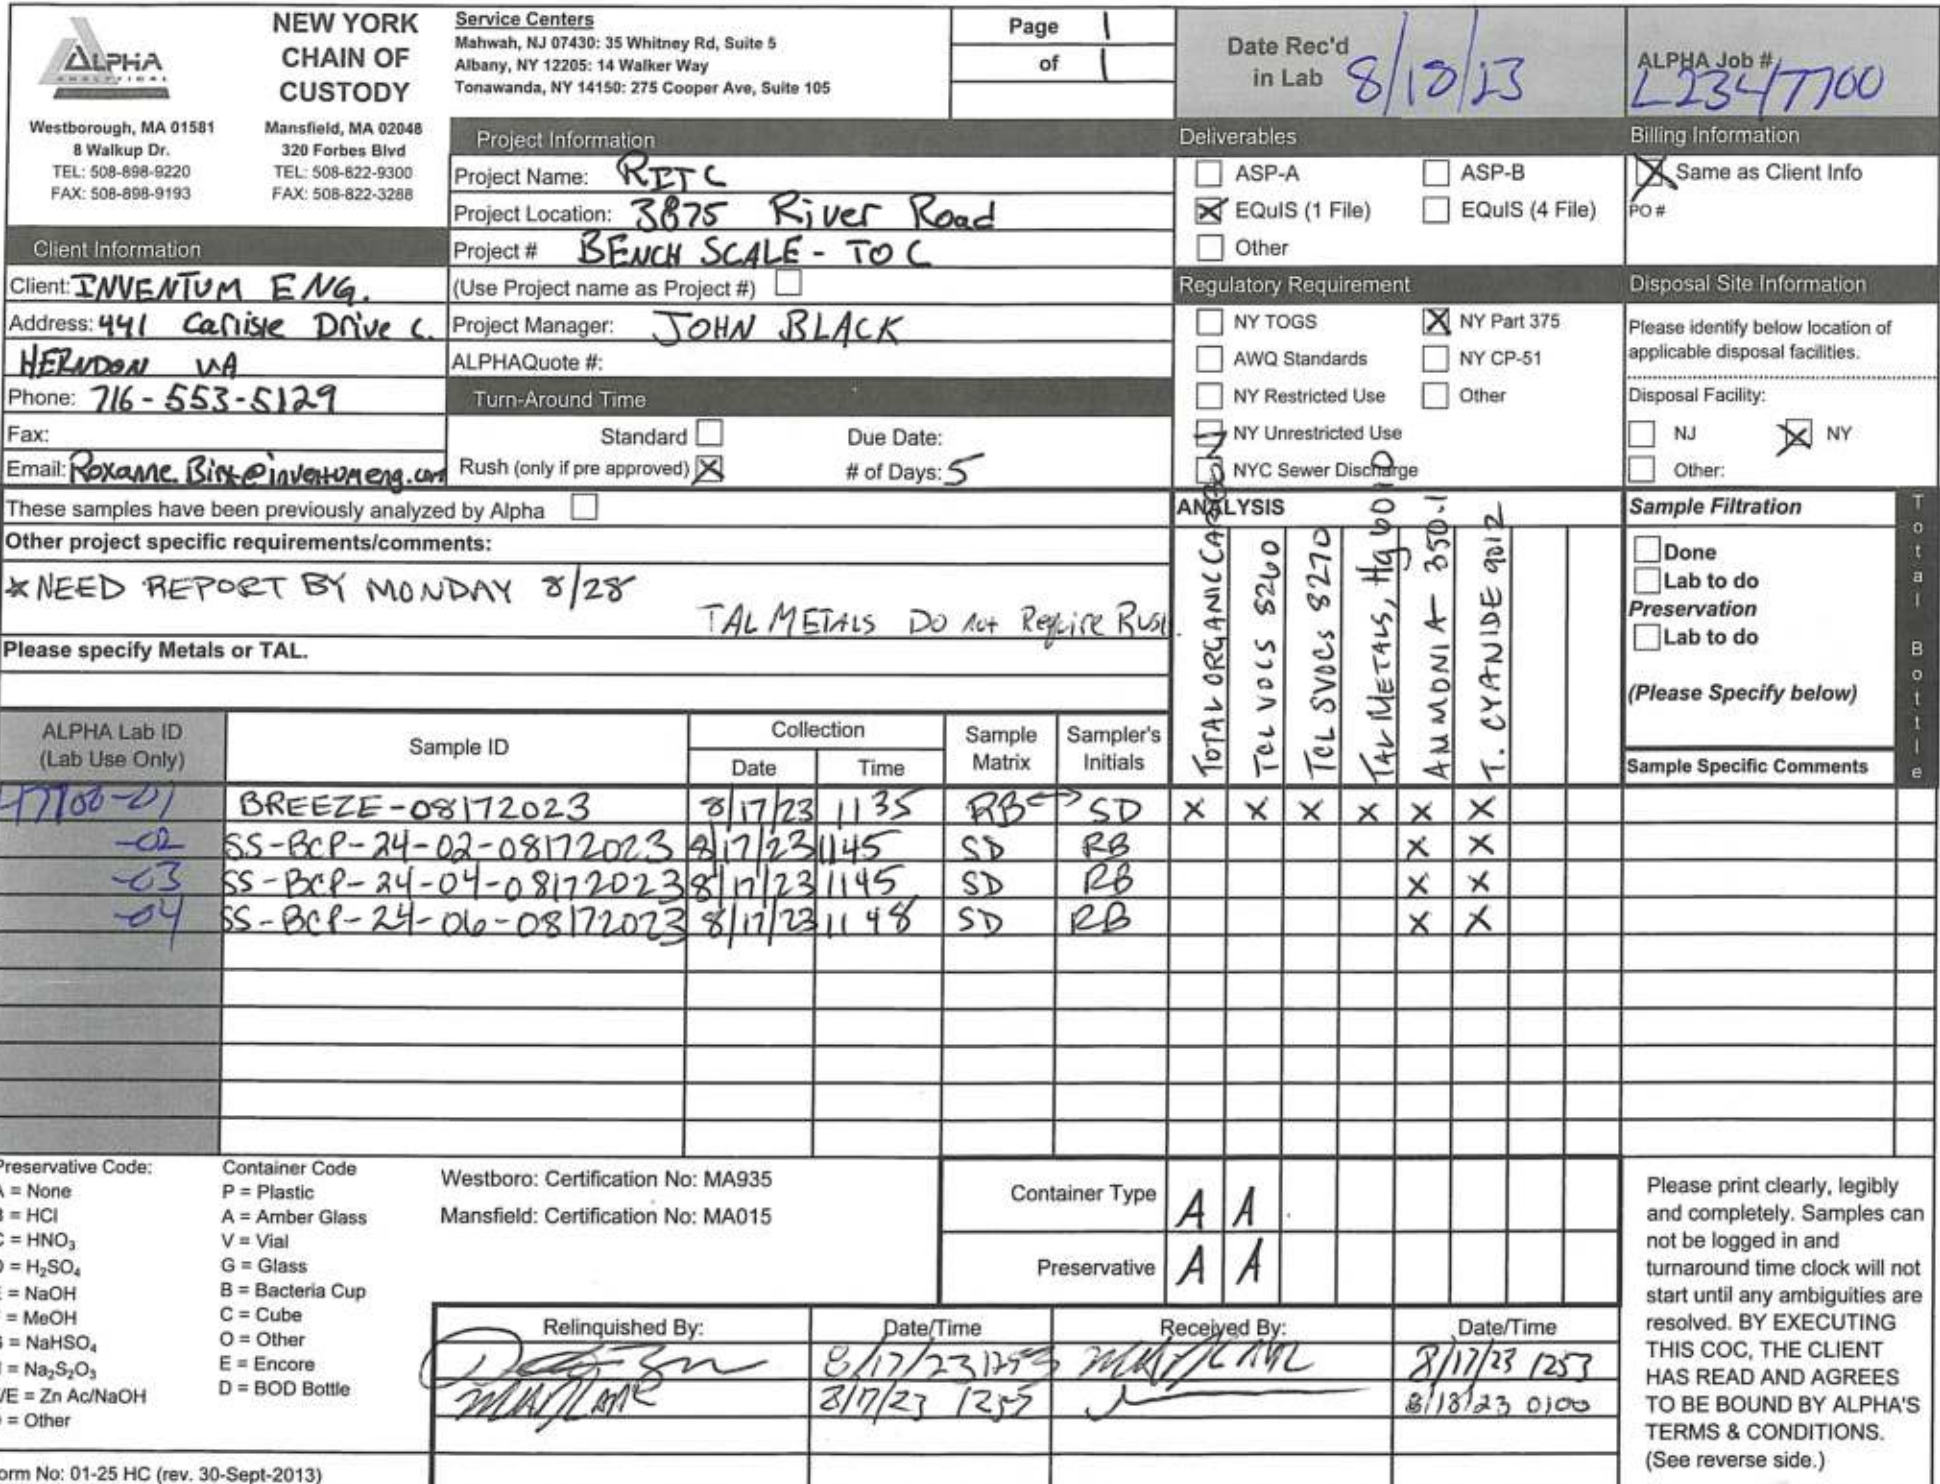 ALPHA
ANALYTICAL
NEW YORK
CHAIN OF
CUSTODY
Westborough, MA 01581
8 Walkup Dr.
TEL: 508-898-9220
FAX: 508-898-9193
Mansfield, MA 02048
320 Forbes Blvd
TEL: 508-822-9300
FAX: 508-822-3288
Service Centers
Mahwah, NJ 07430: 35 Whitney Rd, Suite 5
Albany, NY 12205: 14 Walker Way
Tonawanda, NY 14150: 275 Cooper Ave, Suite 105
Page 1
of 1
Date Rec'd
in Lab 8/18/23
ALPHA Job #
L2347700
Client Information
Client: INVENTUM ENG.
Address: 441 Carlisle Drive C.
HERNDON VA
Phone: 716-553-5129
Fax:
Email: Roxanne.Birx@inventumeng.com
Project Information
Project Name: RITC
Project Location: 3875 River Road
Project # BENCH SCALE - TOC
(Use Project name as Project #)
Project Manager: JOHN BLACK
ALPHAQuote #:
Turn-Around Time
Standard Due Date:
Rush (only if pre approved) X # of Days: 5
Deliverables
ASP-A ASP-B
X EQuIS (1 File) EQuIS (4 File)
Other
Regulatory Requirement
NY TOGS X NY Part 375
AWQ Standards NY CP-51
NY Restricted Use Other
NY Unrestricted Use
NYC Sewer Discharge
Billing Information
X Same as Client Info
PO #
Disposal Site Information
Please identify below location of
applicable disposal facilities.
Disposal Facility:
NJ X NY
Other:
These samples have been previously analyzed by Alpha
Other project specific requirements/comments:
*NEED REPORT BY MONDAY 8/28
TAL METALS DO not Require Rush
Please specify Metals or TAL.
ANALYSIS
TOTAL ORGANIC CARBON
TCL VOCS 8260
TCL SVOCs 8270
TAL METALS, Hg 6010
AMMONIA - 350.1
T. CYANIDE 9012
Sample Filtration
Done
Lab to do
Preservation
Lab to do
(Please Specify below)
Total Bottle
ALPHA Lab ID
(Lab Use Only)
Sample ID
Collection
Date Time
Sample
Matrix
Sampler's
Initials
Sample Specific Comments
47700-01 BREEZE-08172023 8/17/23 1135 RB ↔ SD X X X X X X
-02 SS-BCP-24-02-08172023 8/17/23 1145 SD RB X X
-03 SS-BCP-24-04-08172023 8/17/23 1145 SD RB X X
-04 SS-BCP-24-06-08172023 8/17/23 1148 SD RB X X
Preservative Code:
A = None
B = HCl
C = HNO3
D = H2SO4
E = NaOH
F = MeOH
G = NaHSO4
H = Na2S2O3
K/E = Zn Ac/NaOH
O = Other
Container Code
P = Plastic
A = Amber Glass
V = Vial
G = Glass
B = Bacteria Cup
C = Cube
O = Other
E = Encore
D = BOD Bottle
Westboro: Certification No: MA935
Mansfield: Certification No: MA015
Container Type A A
Preservative A A
Relinquished By: Date/Time Received By: Date/Time
8/17/23 1253 8/17/23 1253
8/17/23 1257 8/18/23 0100
Please print clearly, legibly
and completely. Samples can
not be logged in and
turnaround time clock will not
start until any ambiguities are
resolved. BY EXECUTING
THIS COC, THE CLIENT
HAS READ AND AGREES
TO BE BOUND BY ALPHA'S
TERMS & CONDITIONS.
(See reverse side.)
Form No: 01-25 HC (rev. 30-Sept-2013)